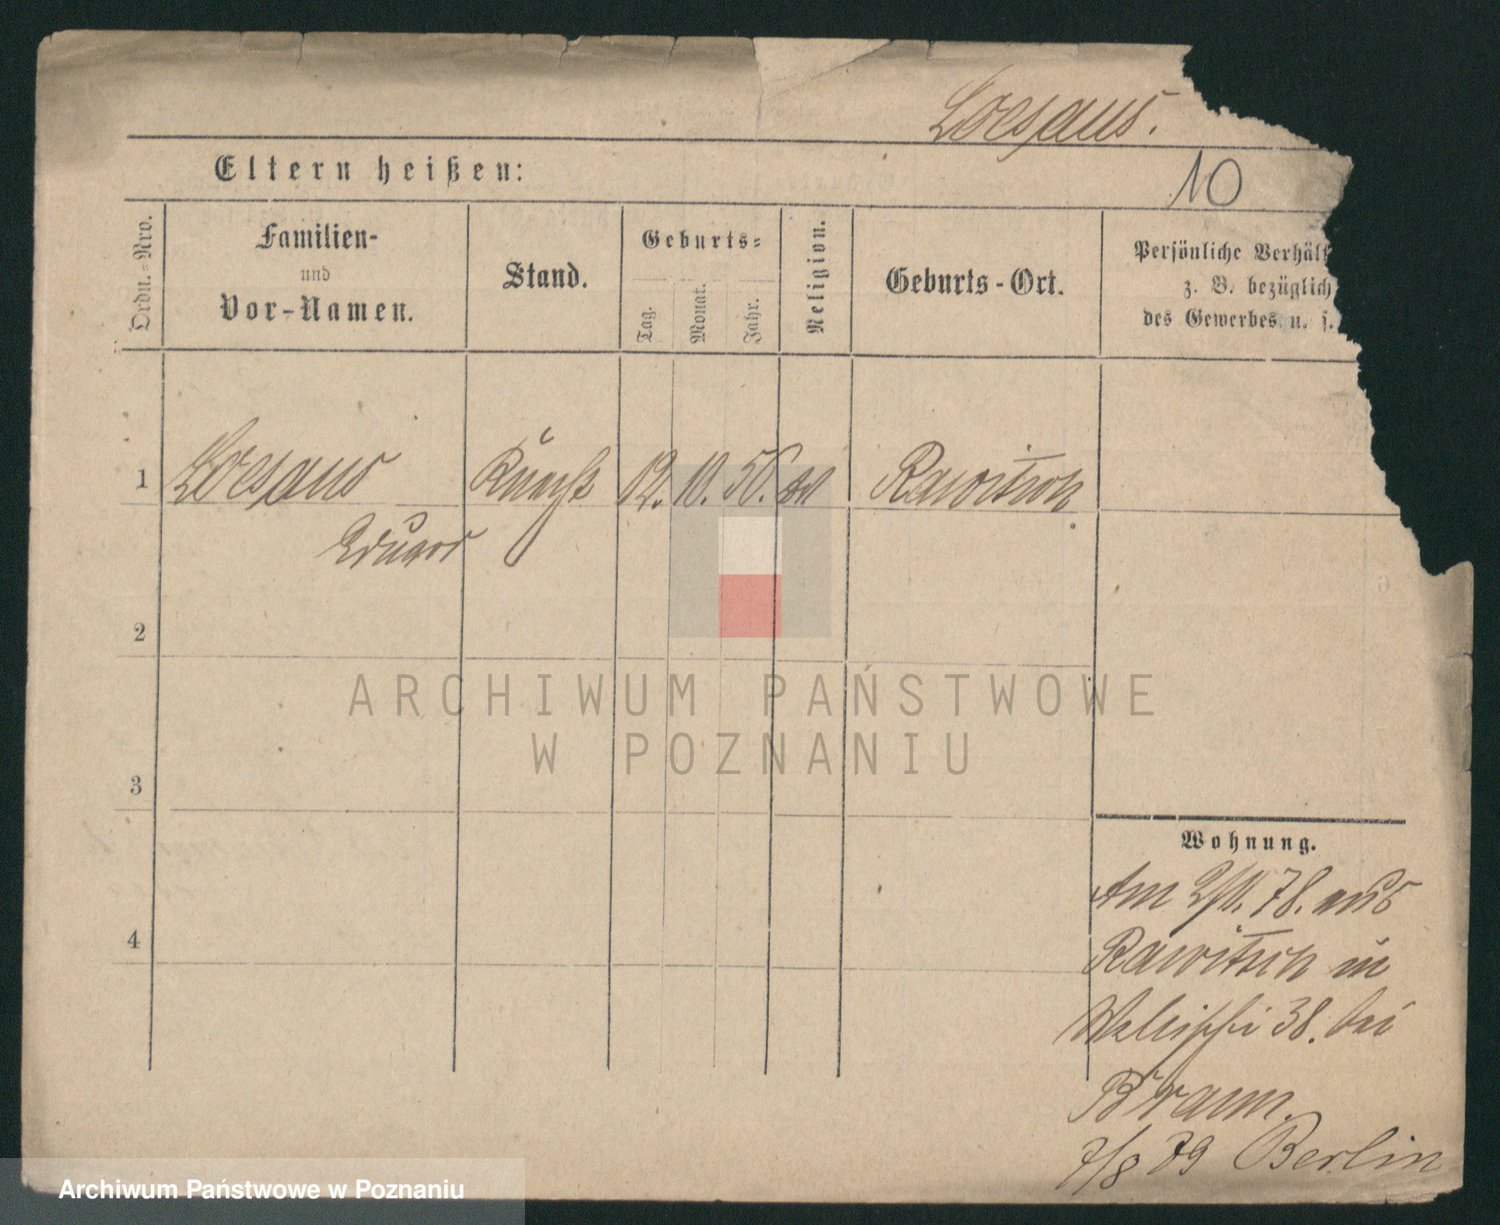 Loesaus.
10
Eltern heißen:
Ordn.-Nro.
Familien-
und
Vor-Namen.
Stand.
Geburts-
Tag.
Monat.
Jahr.
Religion.
Geburts-Ort.
Persönliche Verhält
z. B. bezüglich
des Gewerbes u. s.
1 Loesaus 12. 10. 56. Rawitsch
Eduard
2
3
4
Wohnung.
Am 78. aus
Rawitsch in
Wallischei 38. bei
Braun.
7/8 79 Berlin
ARCHIWUM PAŃSTWOWE
W POZNANIU
Archiwum Państwowe w Poznaniu